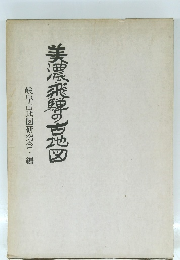 美濃飛騨の古地図
岐阜古地図研究会・編